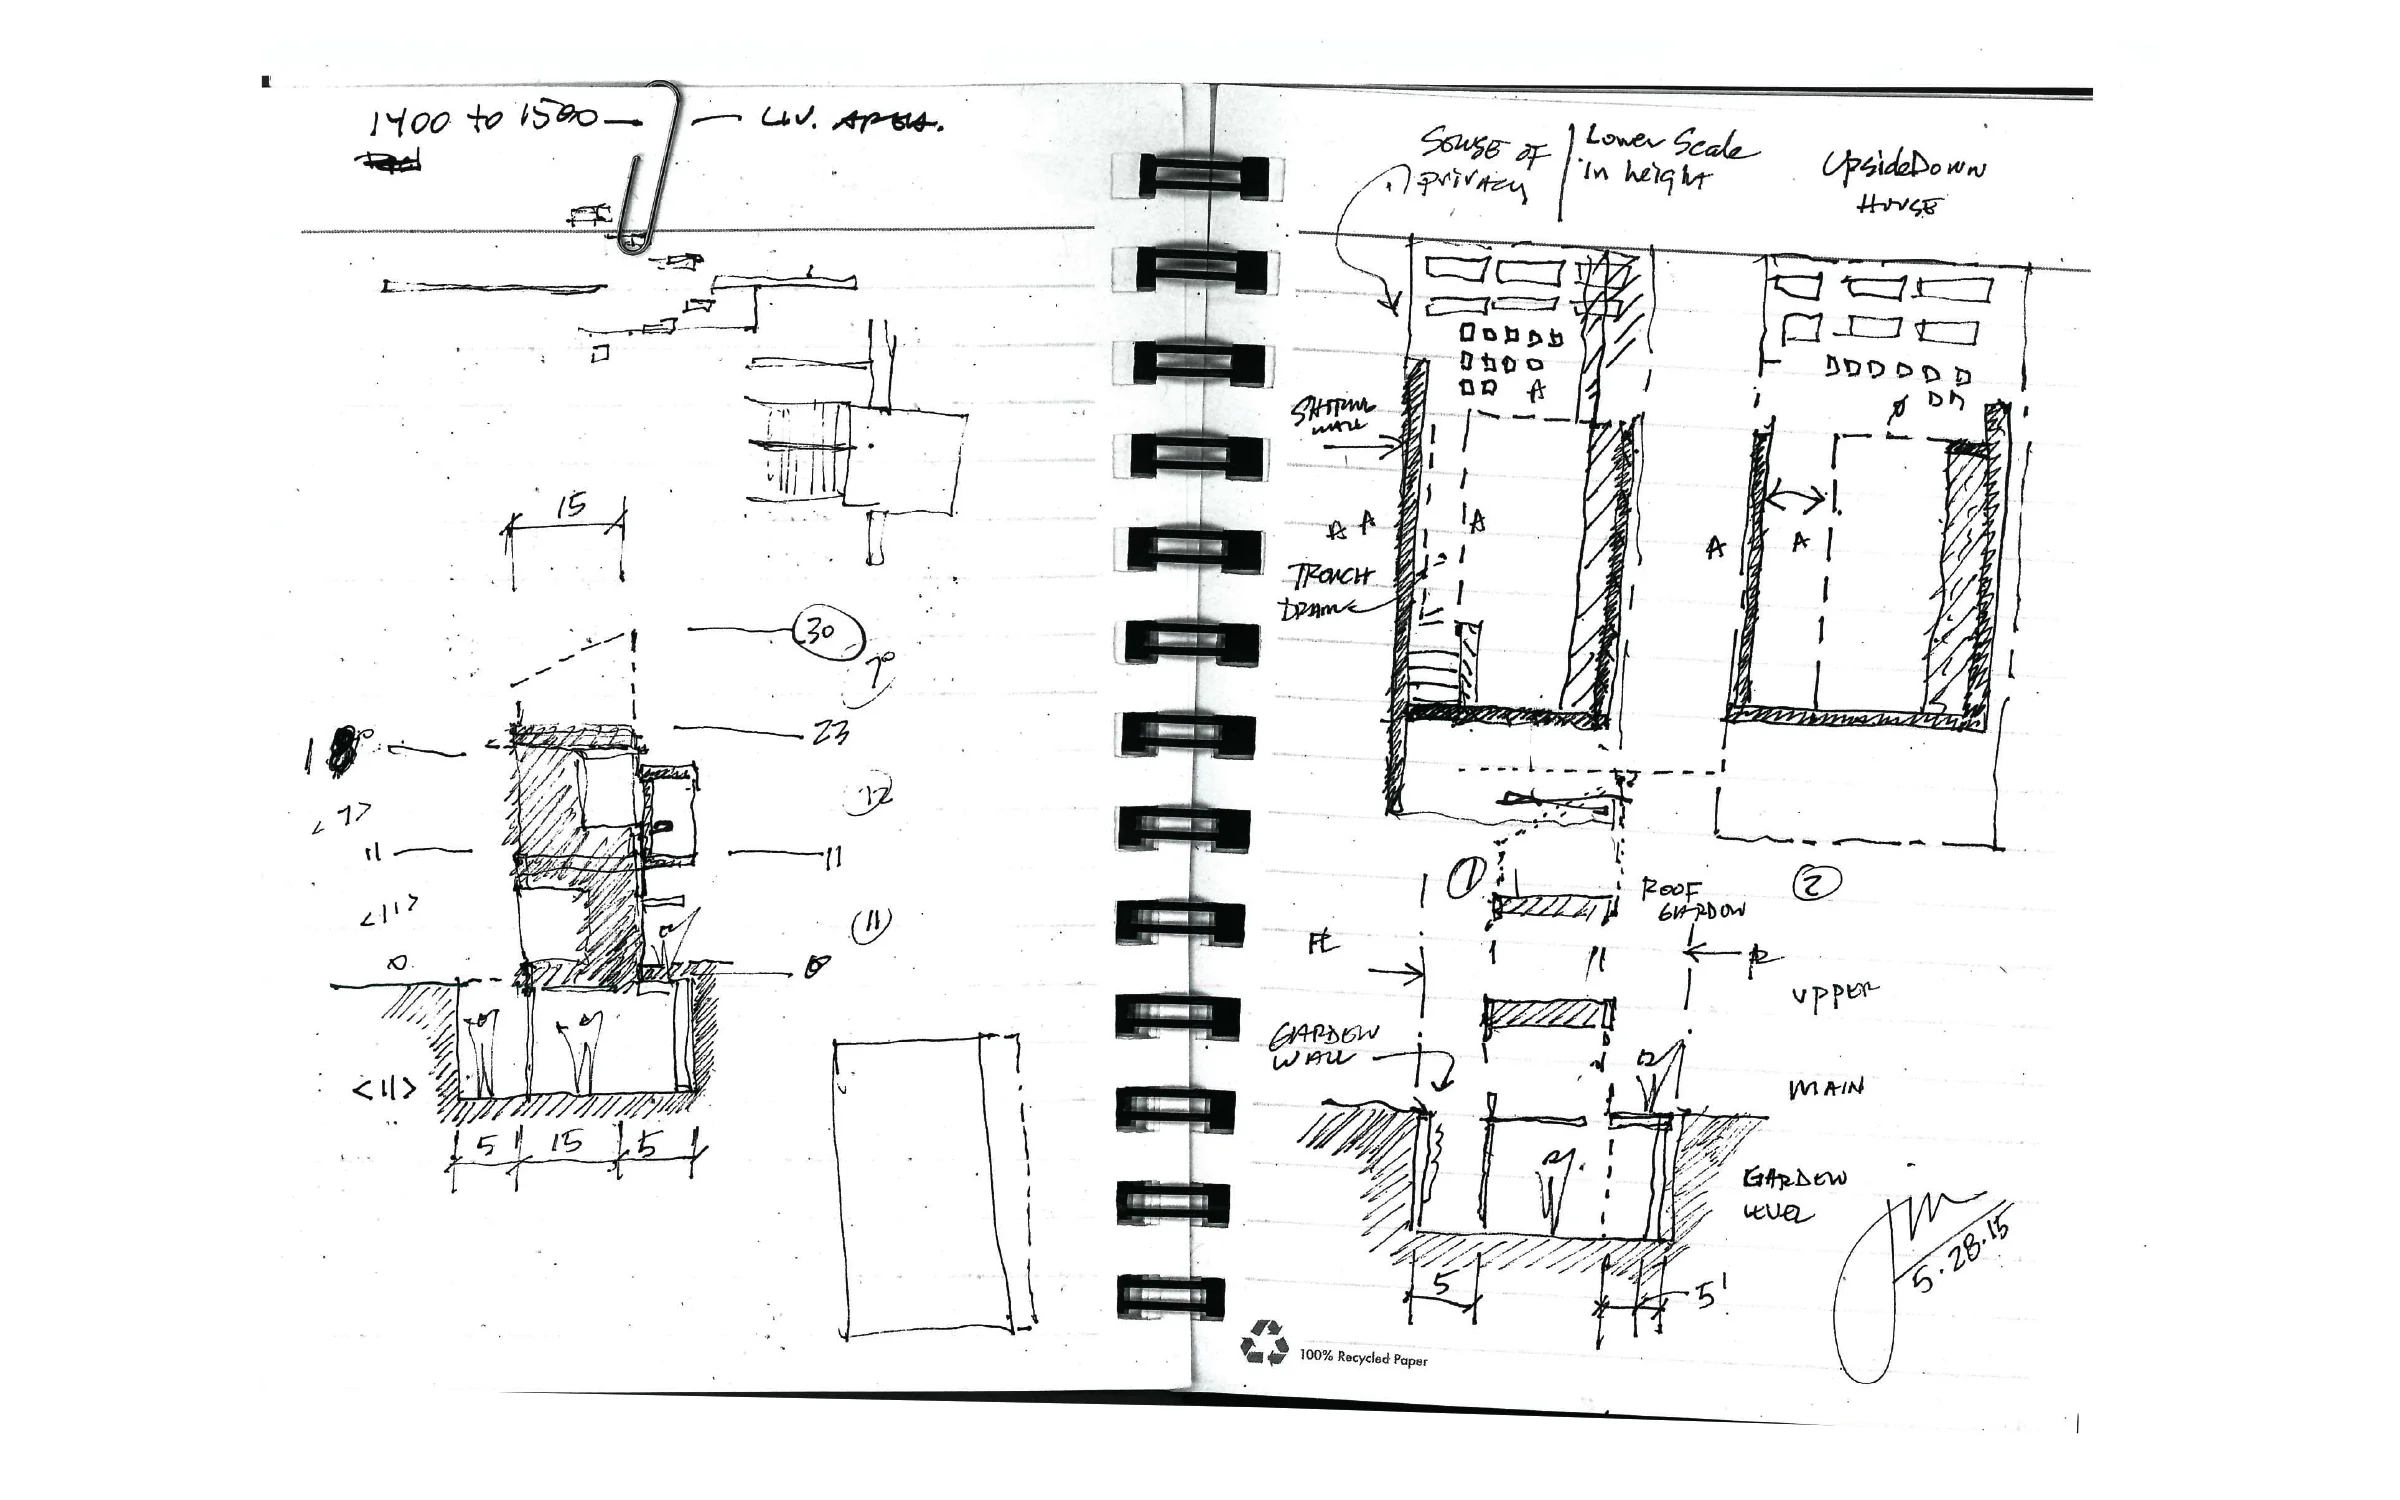 1400 to 1500 — — LIV. AREA.
15
30
23
11
11
<11>
(11)
0
0
<11>
5' 15 5
SENSE OF
privacy
Lower Scale
in height
UpsideDown
HOUSE
A
WALL
A A
A
A
A
TRENCH
DRAIN
1
2
ROOF
GARDEN
PL
UPPER
GARDEN
WALL
MAIN
GARDEN
LEVEL
5
5'
5.28.15
100% Recycled Paper